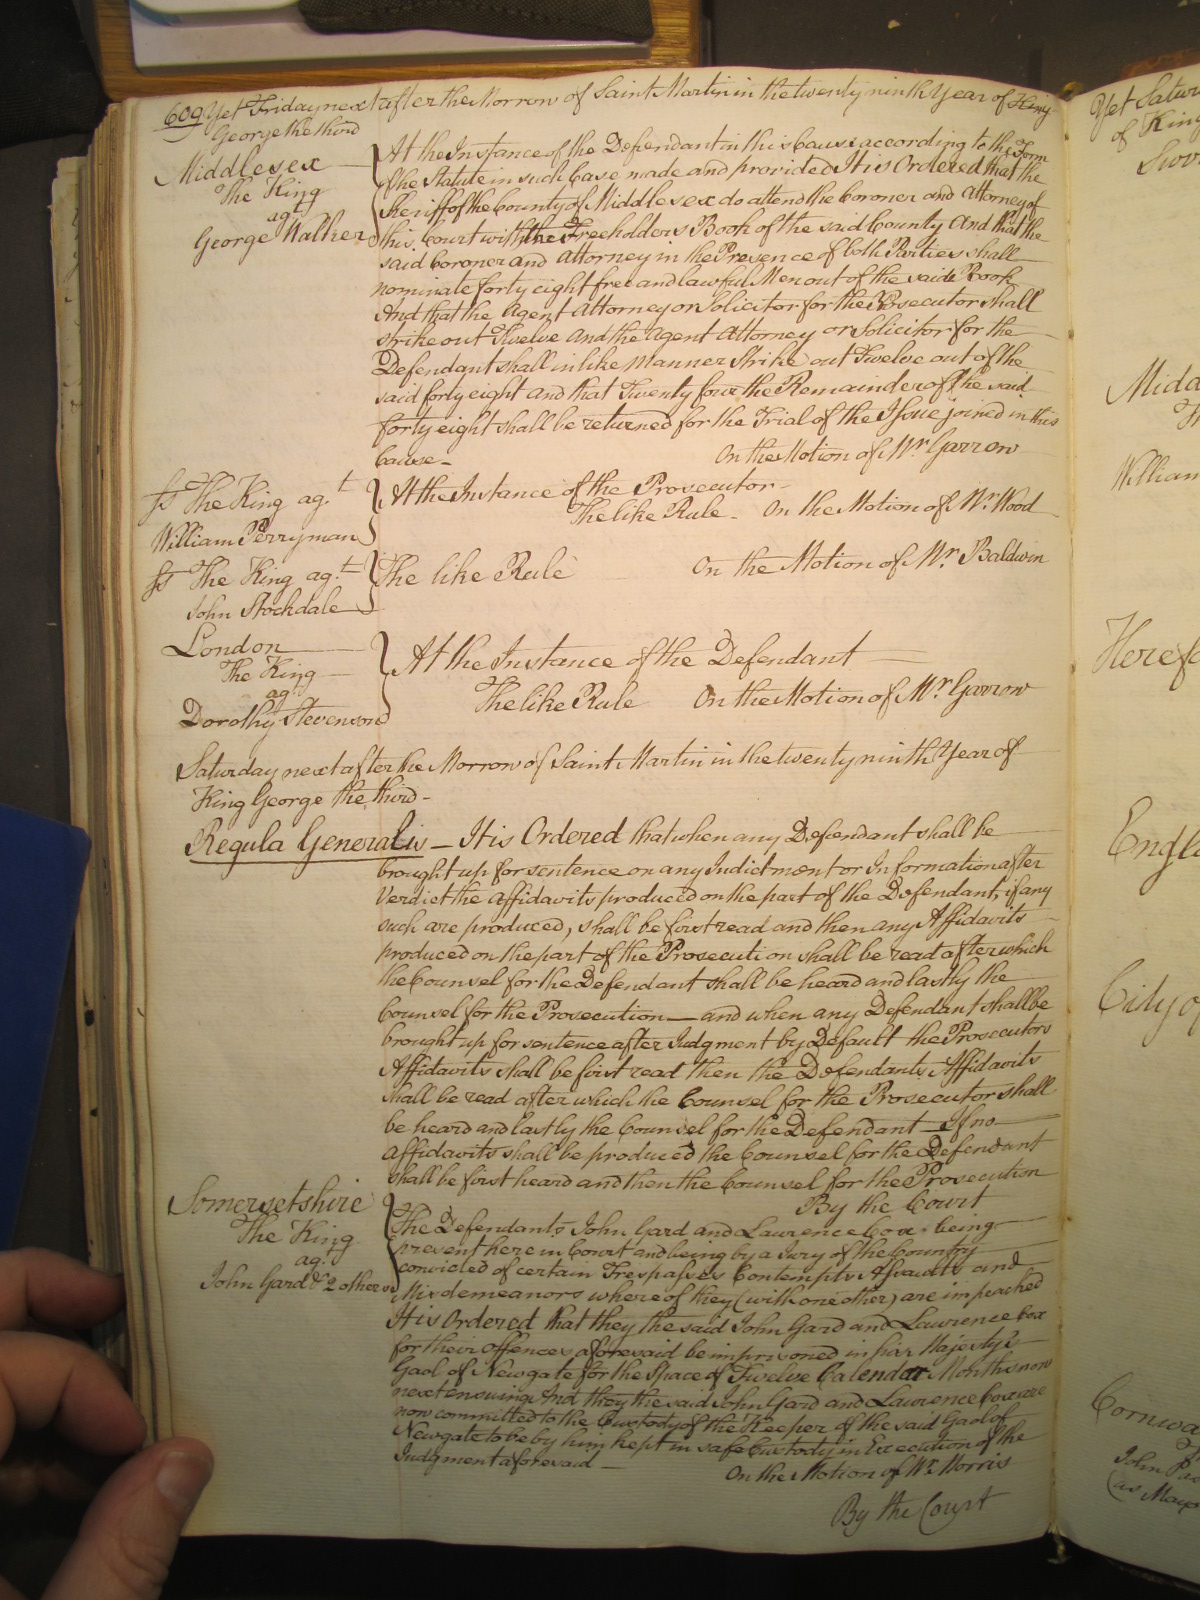 609 Yet Friday next after the Morrow of Saint Martin in the twenty ninth Year of King
George the third
Middlesex
The King
agt
George Walker
At the Instance of the Defendant in this Cause according to the Form
of the Statute in such Case made and provided It is Ordered that the
Sheriff of the County of Middlesex do attend the Coroner and Attorney of
this Court with the Freeholders Book of the said County And that the
said Coroner and Attorney in the Presence of both Parties shall
nominate forty eight free and lawful Men out of the said Book
And that the Agent Attorney or Solicitor for the Prosecutor shall
strike out Twelve And the Agent Attorney or Solicitor for the
Defendant shall in like Manner Strike out Twelve out of the
said forty eight and that Twenty four the Remainder of the said
forty eight shall be returned for the Trial of the Issue joined in this
Cause - On the Motion of Mr Garrow
Ss The King ag.t
William Perryman
At the Instance of the Prosecutor -
The like Rule - On the Motion of Mr. Wood
Ss The King ag.t
John Stockdale
The like Rule On the Motion of Mr. Baldwin
London
The King
agt
Dorothy Stevenson
At the Instance of the Defendant
The like Rule On the Motion of Mr. Garrow
Saturday next after the Morrow of Saint Martin in the twenty ninth Year of
King George the third -
Regula Generalis - It is Ordered that when any Defendant shall be
brought up for sentence on any Indictment or Information after
Verdict the Affidavits produced on the part of the Defendant, if any
such are produced, shall be first read and then any Affidavits
produced on the part of the Prosecution shall be read after which
the Counsel for the Defendant shall be heard and lastly the
Counsel for the Prosecution — and when any Defendant shall be
brought up for sentence after Judgment by Default the Prosecutors
Affidavits shall be first read then the Defendants Affidavits
shall be read after which the Counsel for the Prosecutor shall
be heard and lastly the Counsel for the Defendant — If no
affidavits shall be produced the Counsel for the Defendant
shall be first heard and then the Counsel for the Prosecution
By the Court
Somersetshire
The King
agt
John Gard & 2 others
The Defendants John Gard and Lawrence Cox being
present here in Court and being by a Jury of the Country
convicted of certain Trespasses Contempts Assaults and
Misdemeanors whereof they (with one other) are impeached
It is Ordered that they the said John Gard and Lawrence Cox
for their offences aforesaid be imprisoned in his Majesty's
Gaol of Newgate for the Space of Twelve Calendar Months now
next ensuing And they the said John Gard and Lawrence Cox are
now committed to the Custody of the Keeper of the said Gaol of
Newgate to be by him kept in safe Custody in Execution of the
Judgment aforesaid —
On the Motion of Mr. Morris
By the Court
Yet Satur
of King
Midd
William
Heref
Engl
City of
Cornwa
John Pa
(as Mayo